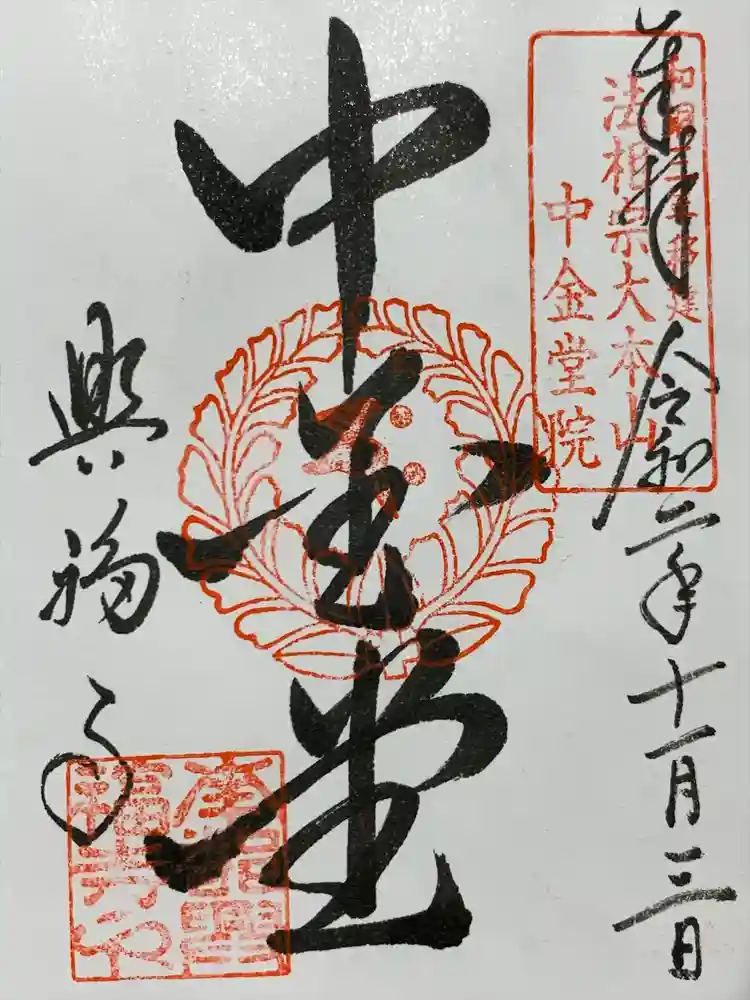 奉拝
令和二年十一月三日
和銅三年移建
法相宗大本山
中金堂院
中金堂
興福寺